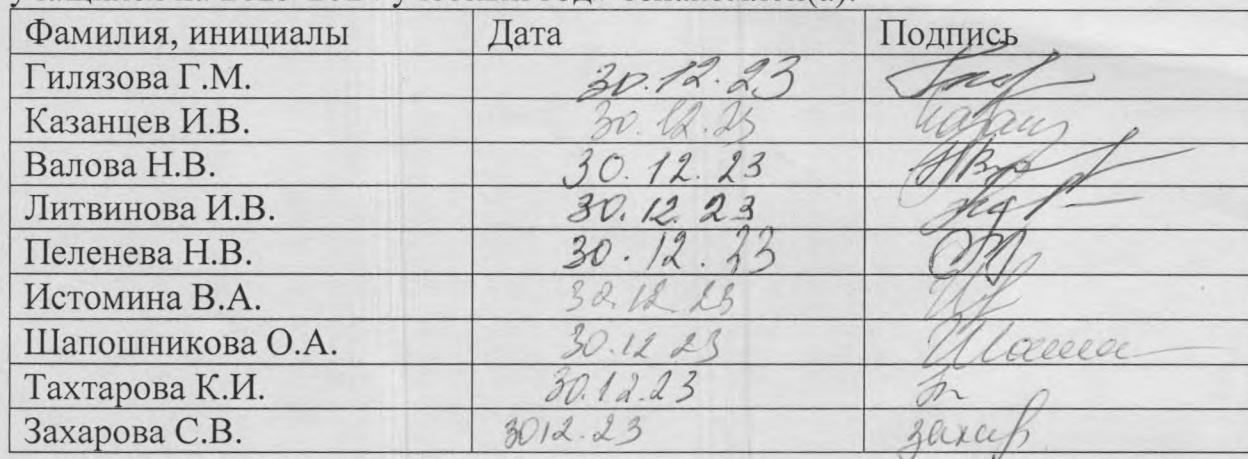 Фамилия, инициалы Дата Подпись
Гилязова Г.М. 30.12.23
Казанцев И.В. 30.12.23 Казанц
Валова Н.В. 30.12.23
Литвинова И.В. 30.12.23
Пеленева Н.В. 30.12.23
Истомина В.А. 30.12.23
Шапошникова О.А. 30.12 23
Тахтарова К.И. 30.12.23
Захарова С.В. 3012.23 Захар